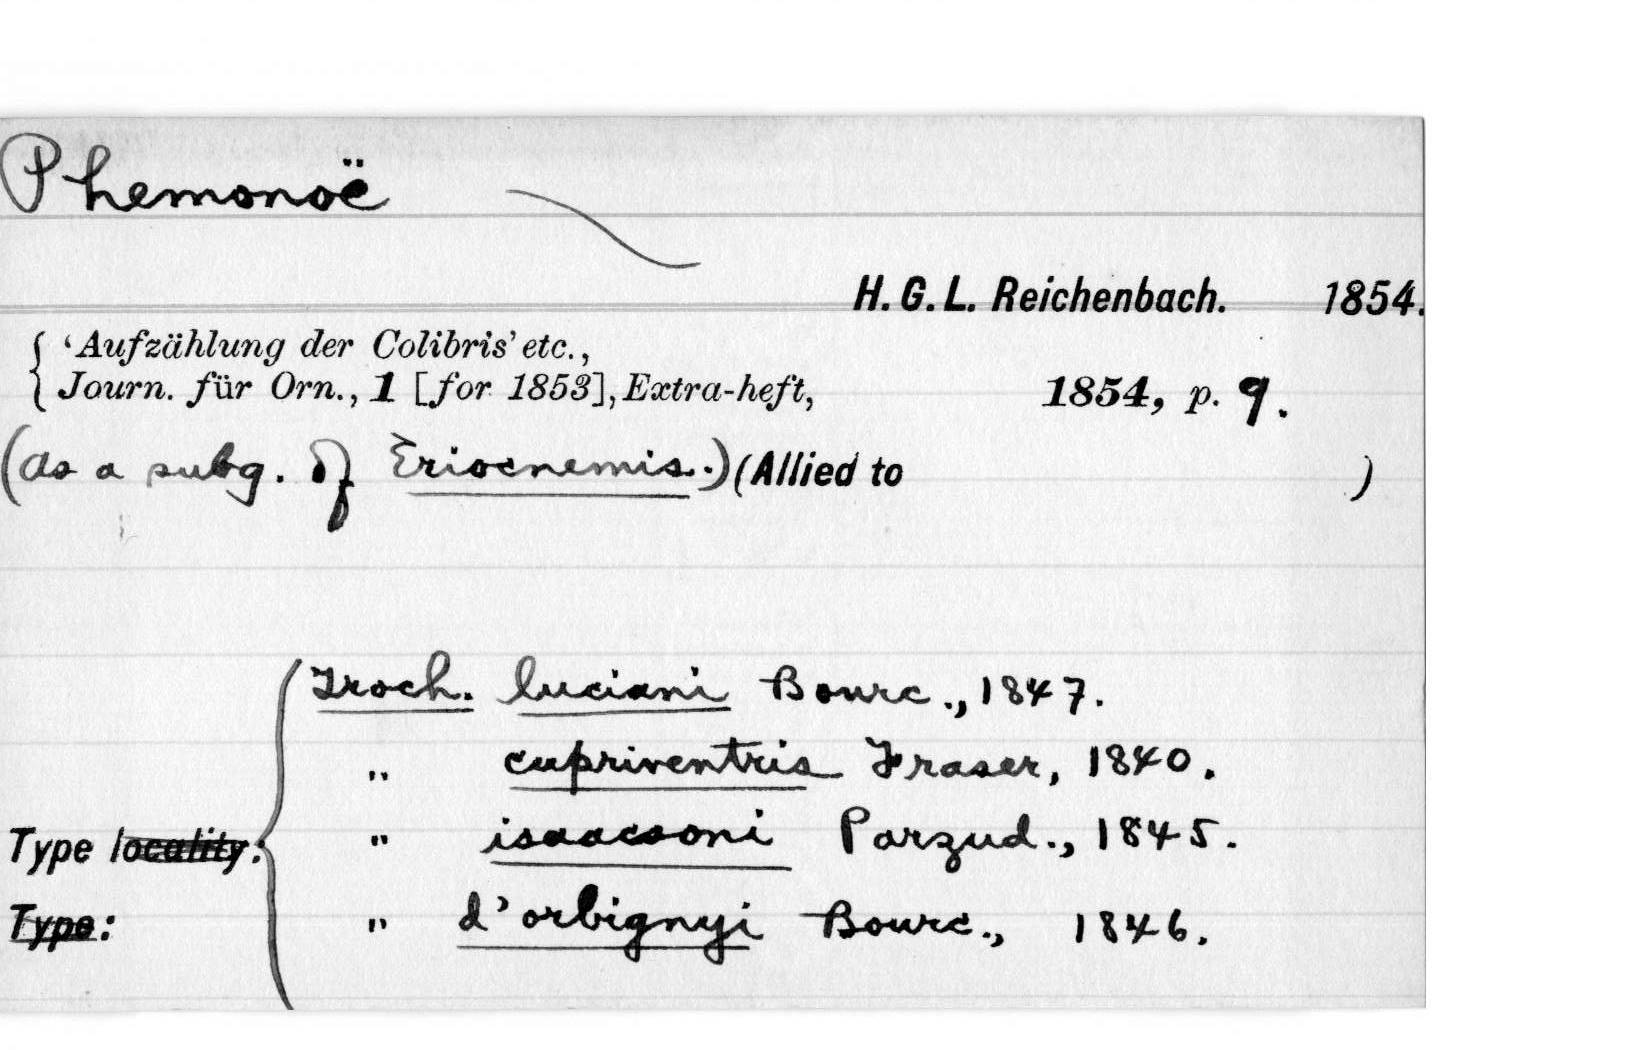 Phemonoë
H. G. L. Reichenbach. 1854.
'Aufzählung der Colibris' etc.,
Journ. für Orn., 1 [for 1853], Extra-heft, 1854, p. 9.
(as a subg. of Eriocnemis.) (Allied to )
Troch. luciani Bourc., 1847.
" cupriventris Fraser, 1840.
Type locality: " isaacsoni Parzud., 1845.
Type: " d'orbignyi Bourc., 1846.